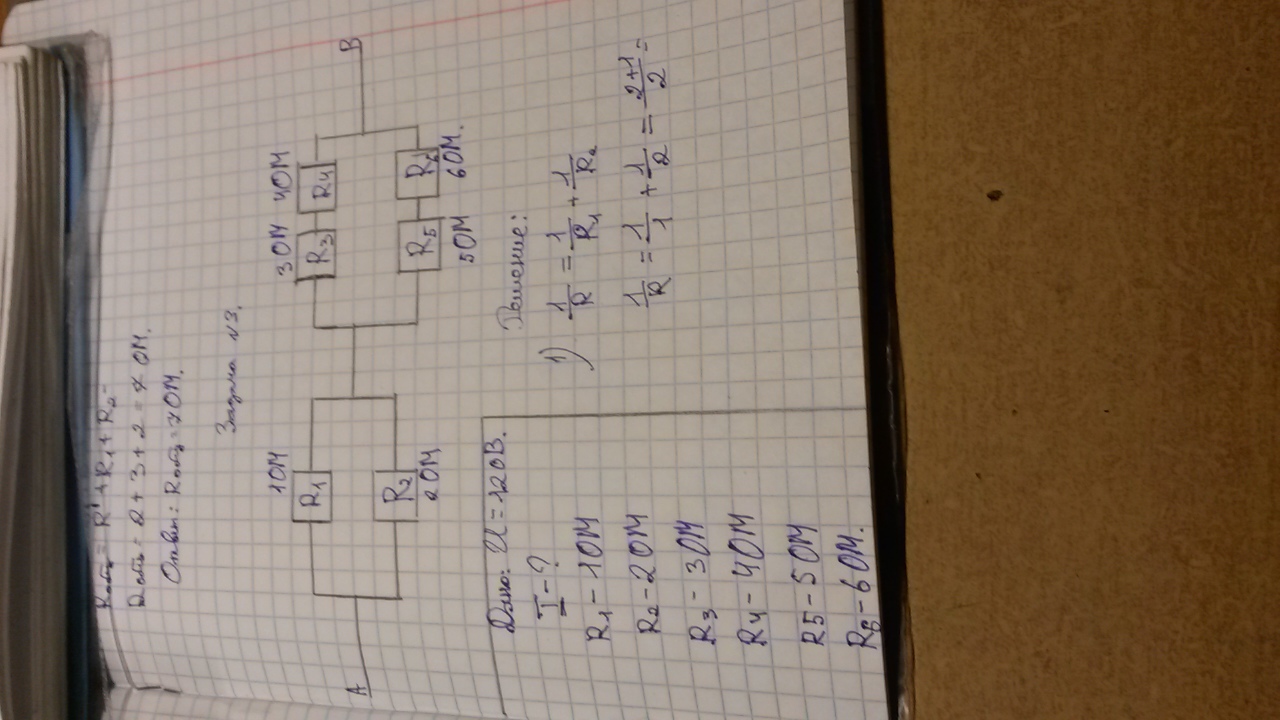 Rобщ = R' + R1 + R2 =
Rобщ = 2 + 3 + 2 = 7 ОМ.
Ответ: Rобщ = 7 ОМ.
Задача №3.
1 ОМ 3 ОМ 4 ОМ
R1 R3 R4
A B
R2 R5 R6
2 ОМ 5 ОМ 6 ОМ.
Дано: U = 120В.
I - ?
R1 - 1 ОМ
R2 - 2 ОМ
R3 - 3 ОМ
R4 - 4 ОМ
R5 - 5 ОМ
R6 - 6 ОМ.
Решение:
1) 1/R = 1/R1 + 1/R2
1/R = 1/1 + 1/2 = 2+1/2 =